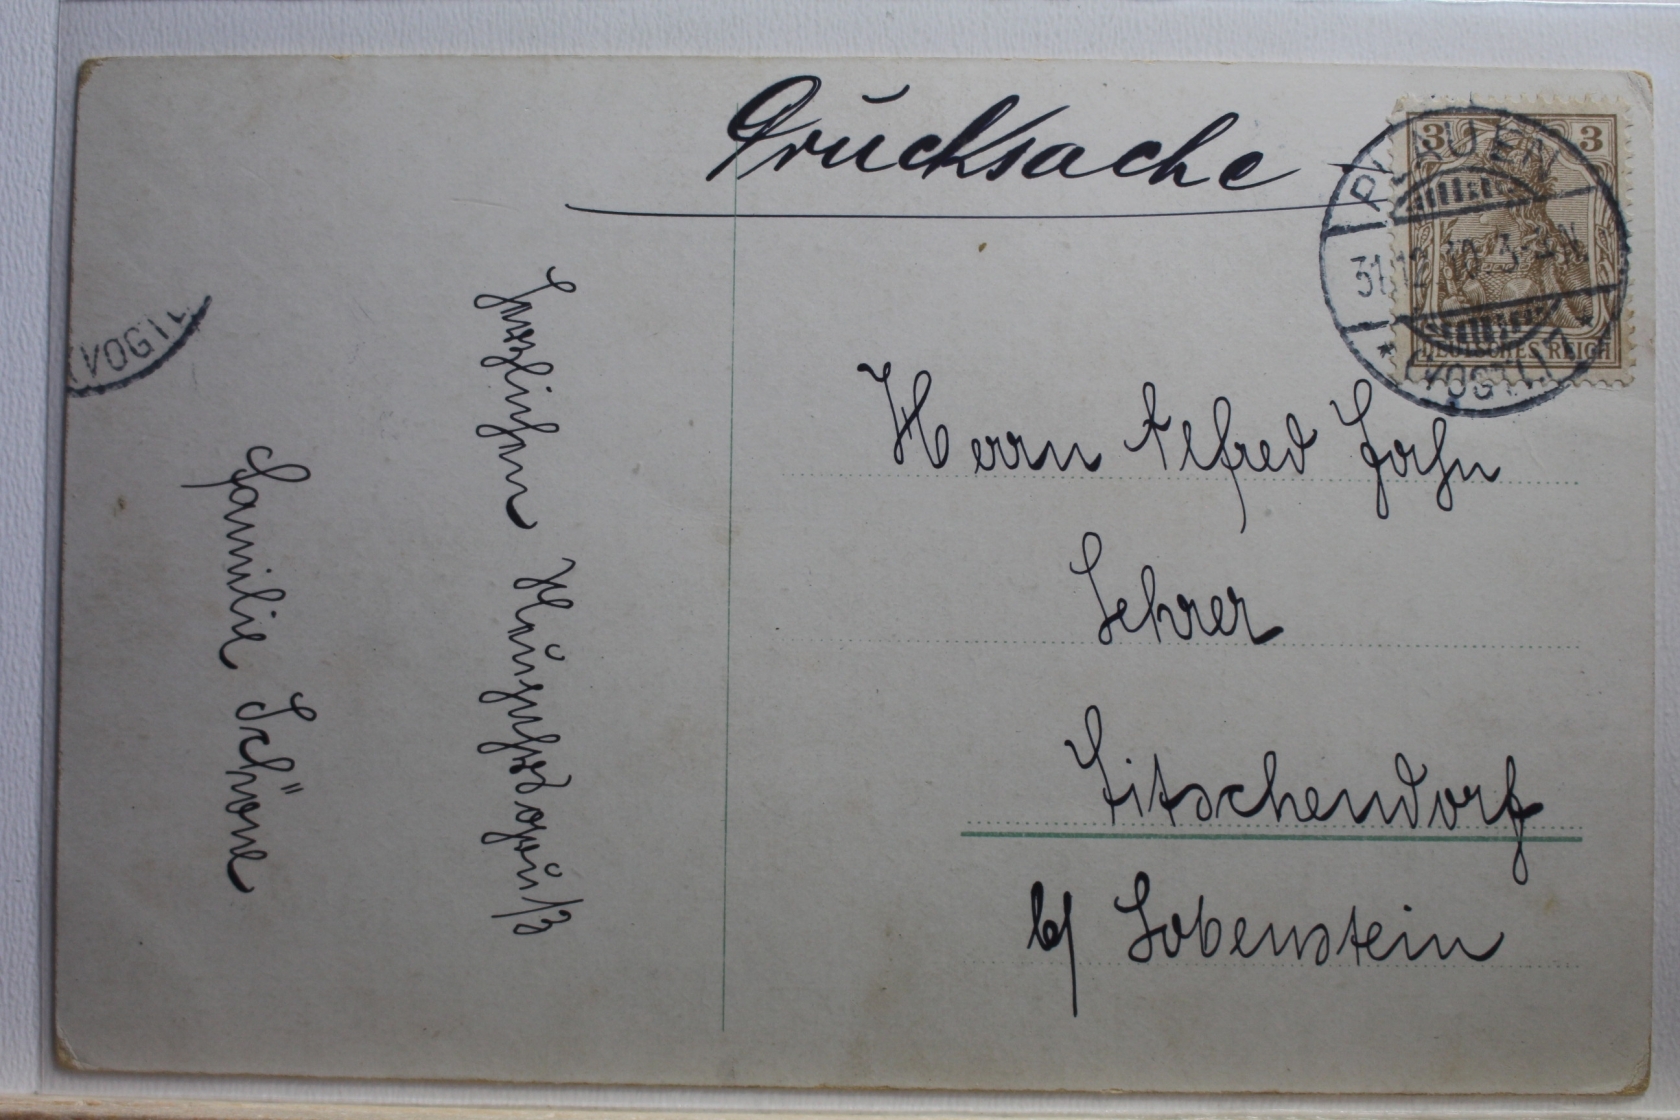 Drucksache
3 3
PLAUEN
31.12.10. 3-4N.
DEUTSCHES REICH
* (VOGTL.) *
(VOGTL
Herrn Alfred Jahn
Lehrer
Titschendorf
b/ Lobenstein
Herzlichen Neujahrsgruß
Familie Schöne